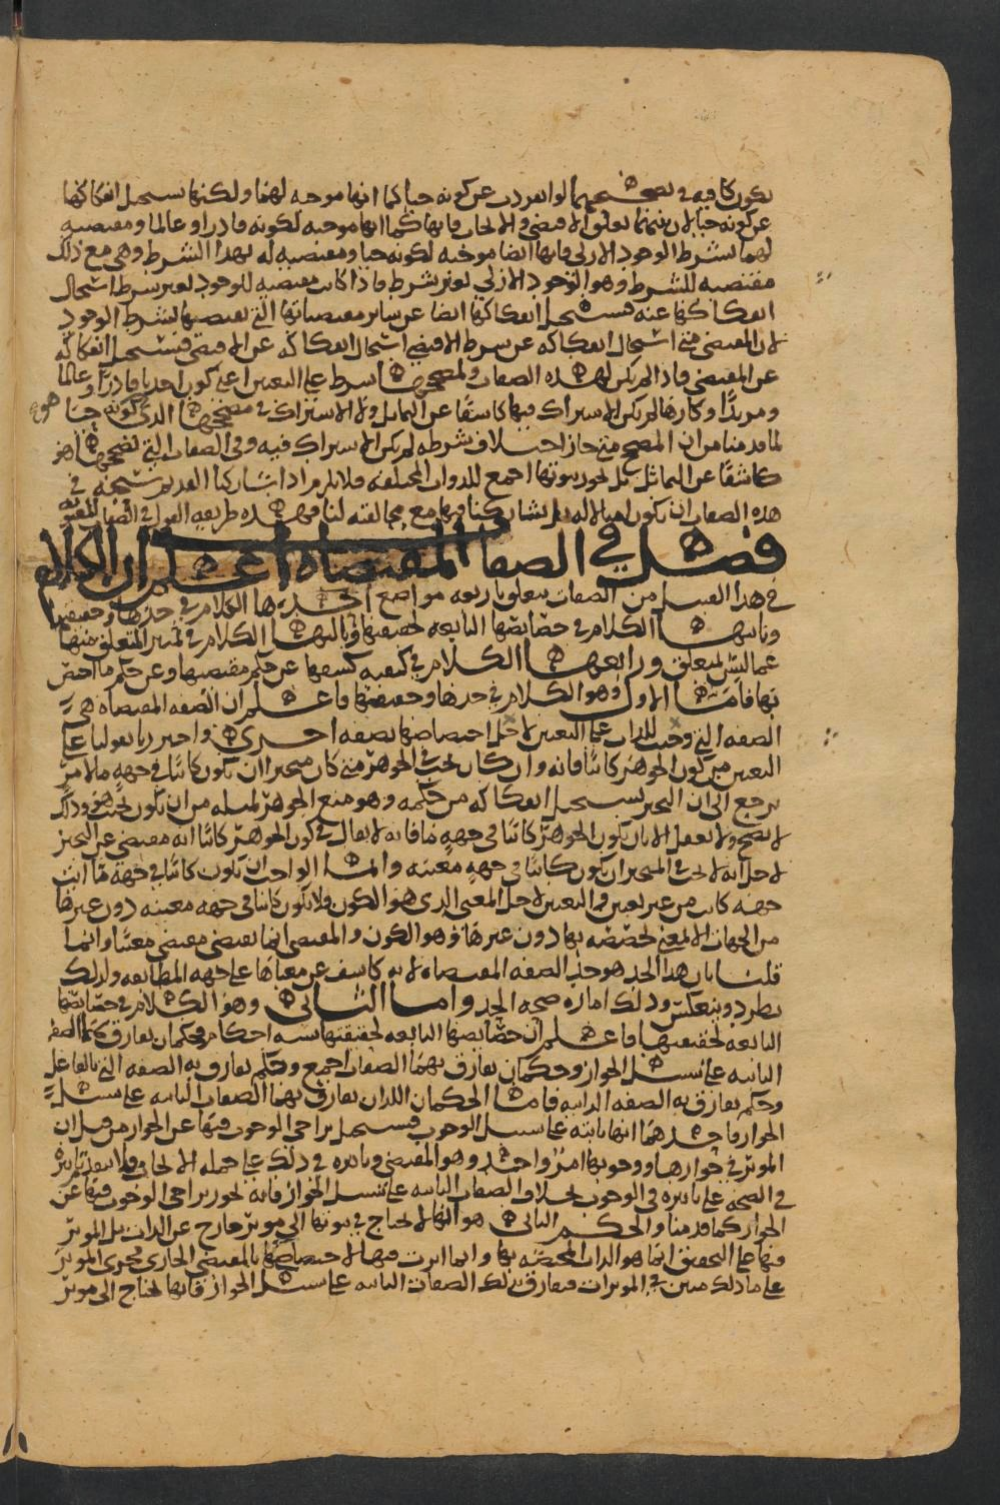 يكون كافيه في تصحيحهما لو انفردت عن كونه حيا كما انها موجبه لهما ولكنها يستحيل انفكاكها
عن كونه حيا لان بينهما تعلق الاقتضى والايجاب فانها كما انها موجبه لكونه قادرا وعالما ومقتضيه
لهما بشرط الوجود الازلي فانها ايضا موجبه لكونه حيا ومقتضيه له بهذا الشرط وهي مع ذلك
مقتضيه للشرط وهو الوجود الازلي لغير شرط فاذا كانت مقتضيه للوجود لغير شرط استحال
انفكاكها عنه فيستحيل انفكاكها ايضا عن سائر مقتضياتها التي تقتضيها بشرط الوجود
لان المقتضي متى استحال انفكاكه عن شرط الاقتضى استحال انفكاكه عن الاقتضى فيستحيل انفكاكه
عن المقتضى فاذا لم يكن لهذه الصفات ولمصححها شرط على التعيين اعني كون احدنا قادرا وعالما
ومريدا وكارها لم يكن الاشتراك فيها كاشفا عن التماثل ولا الاشتراك في مصححها الذي هو كونه حيا
لما قدمنا من ان المصحح متى جاز اختلاف شرطه لم يكن الاشتراك فيه وفي الصفات التي تصححها
كاشفا عن التماثل بل يجوز ثبوتها اجمع للذوات المختلفه فلا يلزم اذا شاركنا القديم سبحنه في
هذه الصفات ان يكون مثلا له بل يشاركنا فيها مع مخالفته لنا فهذه طريقه القول في الصفات المقتضيه
فصل في الصفات المقتضاه اعلم ان الكلام
في هذا القبيل من الصفات يتعلق باربعه مواضع احدها الكلام في حدها وحقيقتها
وثانيها الكلام في خصايصها التابعه لحقيقتها وثالثها الكلام في تمييز المتعلق منها
عما ليس بمتعلق ورابعها الكلام في كيفيه كشفها عن حكم مقتضيها وعن حكم ما اختص
بها فاما الاول وهو الكلام في حدها وحقيقتها فاعلم ان الصفه المقتضاه هي
الصفه التي وجبت للذات على التعيين لاجل اختصاصها بصفه اخرى واحترزنا بقولنا على
التعيين من كون الجوهر كائنا فانه وان كان يجب في الجوهر متى كان متحيزا ان يكون كائنا في جهه ما لامر
يرجع الى ان التحيز يستحيل انفكاكه من حكمه وهو منع الجوهر لمثله من ان يكون بحيث هو وذلك
لا يصح ولا يعقل الا بان يكون الجوهر كائنا في جهه ما فانه لا يقال في كون الجوهر كائنا انه مقتضى عن التحيز
لاجل انه لا يجب في المتحيز ان يكون كائنا في جهه معينه وانما الواجب ان يكون كائنا في جهه ما اي
جهه كانت من غير تعيين فما التعيين لاجل المعنى الذي هو الكون فلا يكون كائنا في جهه معينه دون غيرها
من الجهات الا لمعنى يخصصه بها دون غيرها وهو الكون والمقتضى انما يقتضي مقتضى معينا وانما
قلنا بان هذا الحد هو حد الصفه المقتضاه لانه كاشف عن معناها على جهه المطابقه ولذلك
يطرد وينعكس وذلك اماره صحه الحد واما الثاني وهو الكلام في خصايصها
التابعه لحقيقتها فاعلم ان خصايصها التابعه لحقيقتها سته احكام حكمان تفارق بهما الصفه
الثابته على سبيل الجواز وحكمان تفارق بهما الصفات اجمع وحكم تفارق به الصفه التي بالفاعل
وحكم تفارق به الصفه الذاتيه فاما الحكمان اللذان تفارق بهما الصفات الثابته على سبيل
الجواز فاحدهما انها ثابته على سبيل الوجوب فيستحيل تراخي الوجوب فيها عن الجواز من قبل ان
الموثر في جوازها ووجوبها امر واحد وهو المقتضي وتاثيره في ذلك على جهه الايجاب فلا يتقدم تاثيره
في الصحه على تاثيره في الوجوب بخلاف الصفات الثابته على سبيل الجواز فانه يجوز تراخي الوجوب فيها عن
الجواز كما قدمنا والحكم الثاني هو انها لا تحتاج في ثبوتها الى موثر خارج عن الذات بل الموثر
فيها على التحقيق انما هو الذات المختصه بها وانما اثرت فيها لاختصاصها بالمقتضي الجاري مجرى الموثر
على ما ذلك مبين في الموثرات فيفارق بذلك الصفات الثابته على سبيل الجواز فانها تحتاج الى موثر